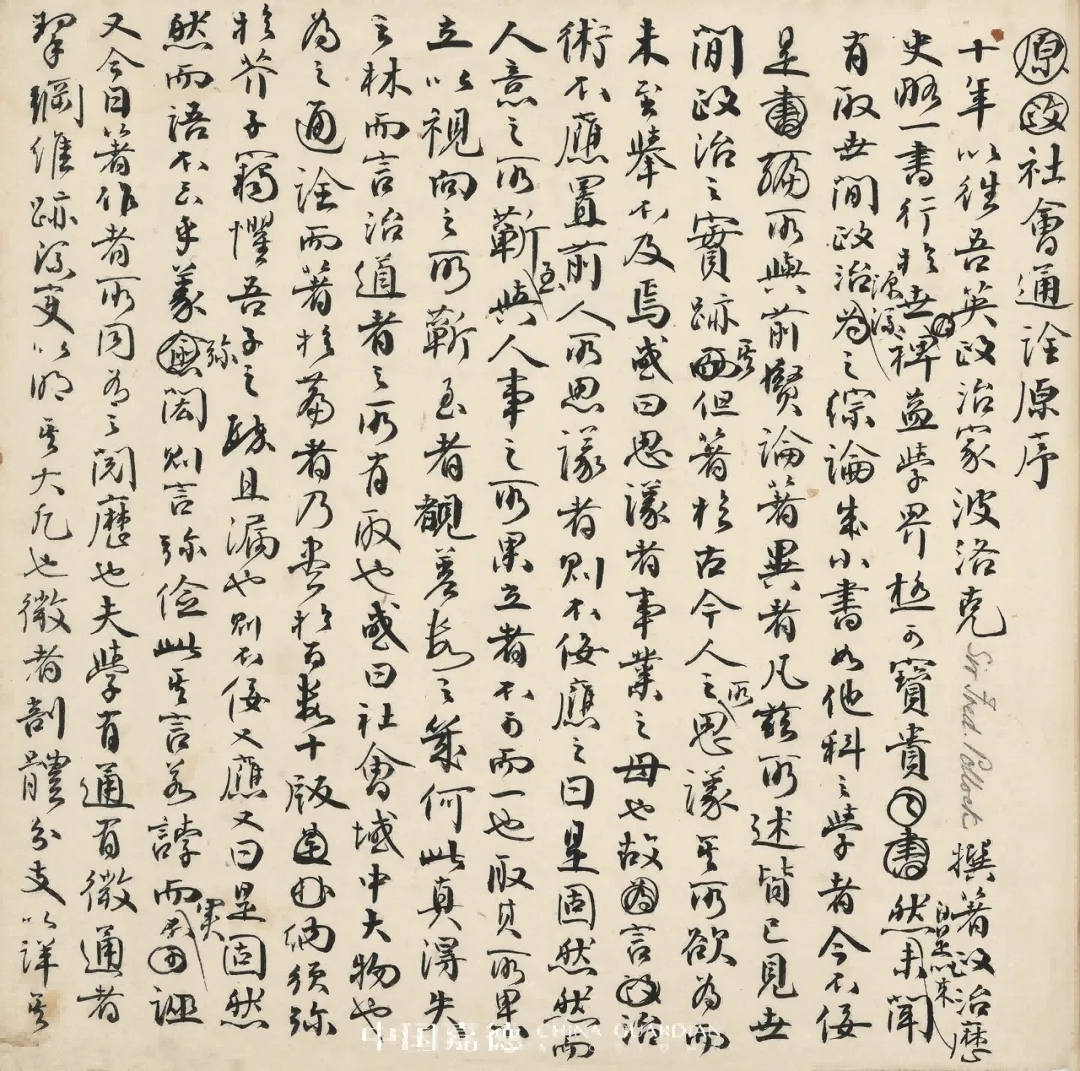 原政社會通詮原序
十年以往吾英政治家波洛克 Sir Fred. Pollock 撰著政治歷
史略一書行於世裨益學界極可寶貴書然未聞
自是以來
有取世間政治為之綜論成小書如他科之學者今不佞
源流
是書所與前賢論著異者凡茲所述皆已見世
間政治之實跡但著於古今人之思議其所欲為而
所
未至舉不及焉或曰思議者事業之母也故言治
術不應置前人所思議者則不佞應之曰是固然然而
人意之所蘄與人事之所果立者不可而一也取其所果
至
立以視向之所蘄至者覩差數之幾何此真得失
之林而言治道者之所有取也或曰社會域中大物也
為之通詮而著於篇者乃盡於百數十版之中緬須彌
於芥子竊懼吾子之疎且漏也則不佞又應又曰是固然
然而語不云乎義彌閎則言彌儉此其言若誖而不誣
實
又今日著作者所同為之閱歷也夫學有通有微通者
挈綱維跡深支以明其大凡也微者剖體分支以詳其
中国嘉德 CHINA GUARDIAN